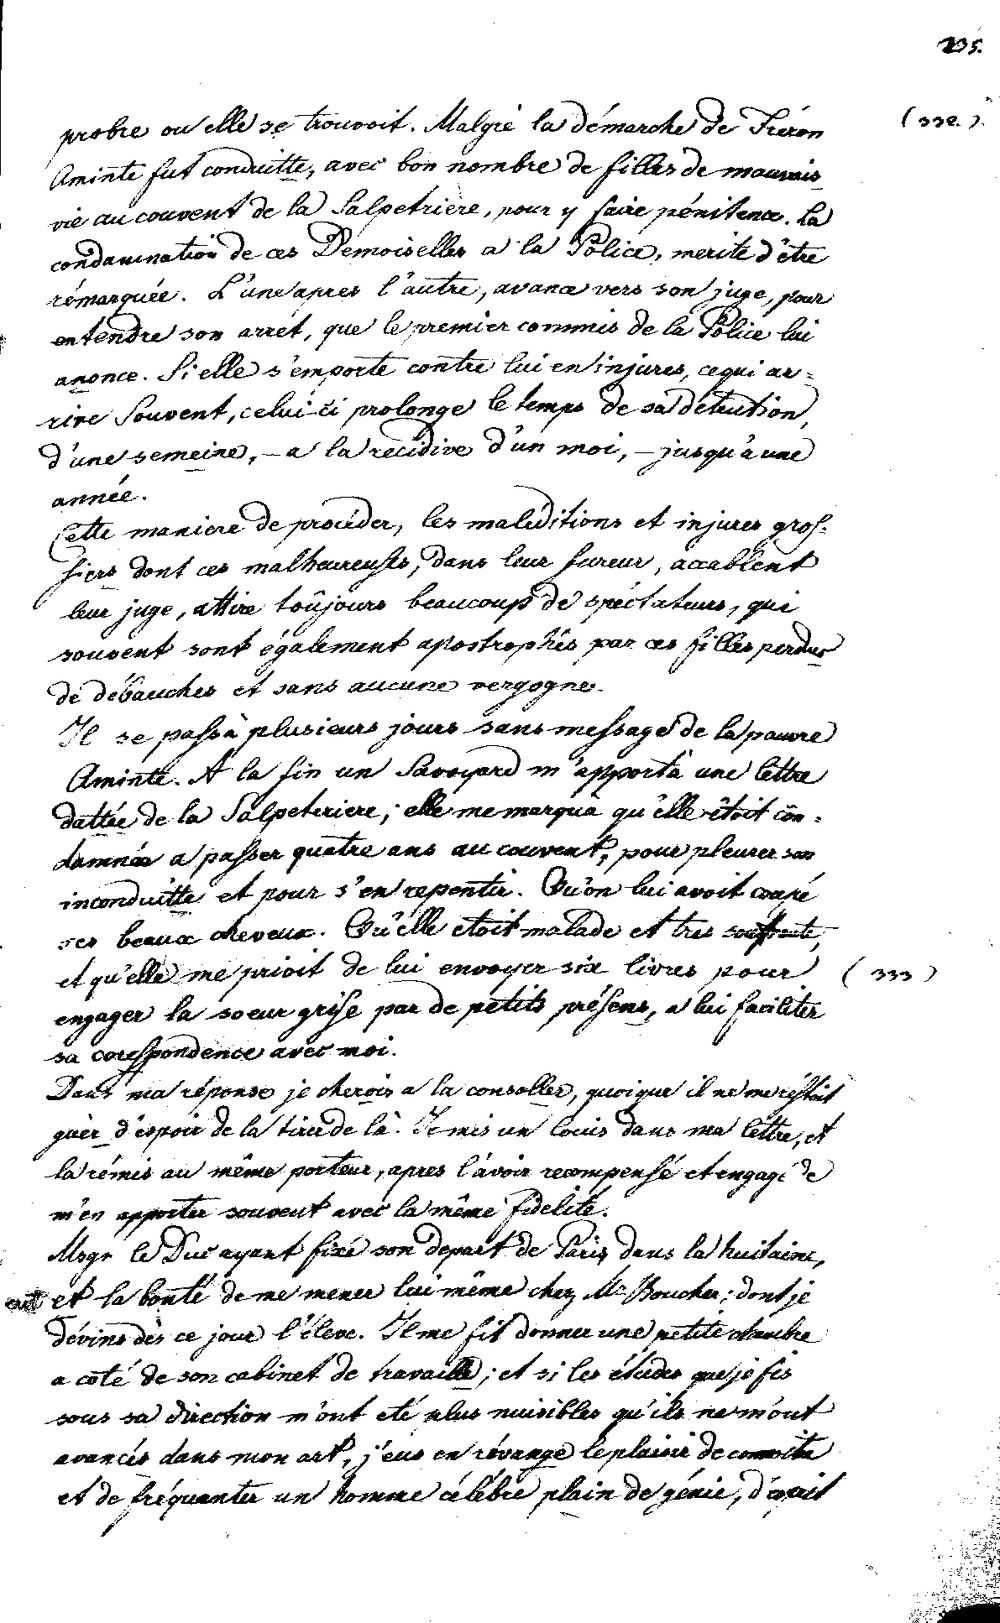 235.
(332.)
probre ou elle se trouvoit. Malgré la démarche de Fréron
Aminte fut conduitte, avec bon nombre de filles de mauvais
vie au couvent de la Salpetriere, pour y faire pénitence. La
condamnation de ces Demoiselles a la Police, merite d'être
rémarquée. L'une apres l'autre, avance vers son juge, pour
entendre son arrét, que le premier commis de la Police lui
anonce. Si elle s'emporte contre lui en injures, ce qui ar=
rive souvent, celui-ci prolonge le temps de sa détention,
d'une semeine, – a la recidive d'un moi, – jusqu'a une
année.
Cette maniere de procéder, les maleditions et injures gros-
siers dont ces malheureuses, dans leur fureur, accablent
leur juge, attire toûjours beaucoup de spéctateurs, qui
souvent sont également apostrophés par ces filles perdues
de débauches et sans aucune vergogne.
Il se passà plusieurs jours sans message de la pauvre
Aminte. A la fin un Savoyard m'apportà une lettre
dattée de la Salpetriere; elle me marquà qu'elle êtoit con=
damnée a passer quatre ans au couvent, pour pleurer son
inconduitte et pour s'en repentir. Qu'on lui avoit coupé
ses beaux cheveux. Qu'elle etoit malade et tres souffrante,
et qu'elle me prioit de lui envoyer six livres pour
(333)
engager la soeur grise par de petits présens, a lui faciliter
sa corespondence avec moi.
Dans ma réponse je cherois a la consoller, quoique il ne me réstoit
guèr d'éspoir de la tirer de là. Je mis un Louis dans ma lettre, et
la rémis au même porteur, apres l'avoir recompensé et engagé de
m'en apporter souvent avec la même fidelité.
Msgr le Duc ayant fixé son depart de Paris dans la huitaine,
eut et la bonté de me mener lui même chez Mr Boucher; dont je
dévins dès ce jour l'éleve. Il me fit donner une petite chambre
a coté de son cabinet de travaille; et si les études que je fis
sous sa direction m'ont eté plus nuisibles qu'ils ne m'ont
avancés dans mon art, j'eus en révange le plaisir de connoitre
et de fréquanter un homme célébre plain de génie, d'ésprit